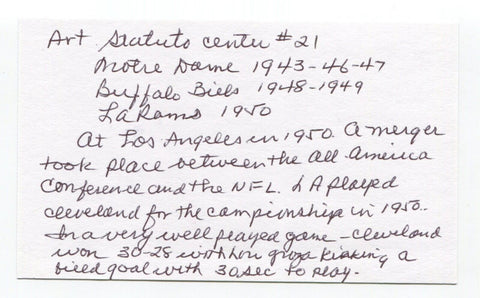 Art Statuto center #21
Notre Dame 1943-46-47
Buffalo Biels 1948-1949
LA Rams 1950
At Los Angeles in 1950. A merger
took place between the all America
Conference and the NFL. LA played
cleveland for the campionship in 1950.
In a very well played game - Cleveland
won 30-28 with Lou groza kicking a
field goal with 30 sec to play.